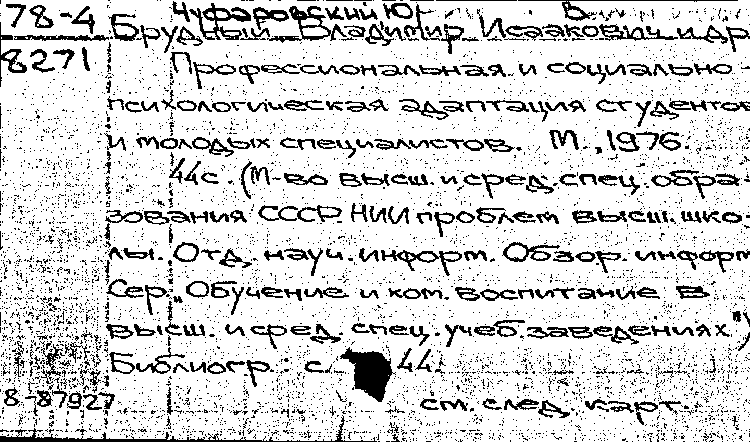 78-4 Чуфаровский Юр В
Брудный Владимир Исаакович и др
8271 Профессиональная и социально-
психологическая адаптация студентов
и молодых специалистов. М., 1976.
44с. (М-во высш. и сред. спец. обра-
зования СССР. НИИ проблем высш. шко-
лы. Отд. науч. информ. Обзор. информ
Сер. „Обучение и ком. воспитание в
высш. и сред. спец. учеб. заведениях")
Библиогр.: с. 44.
8-87927 см. след. карт.